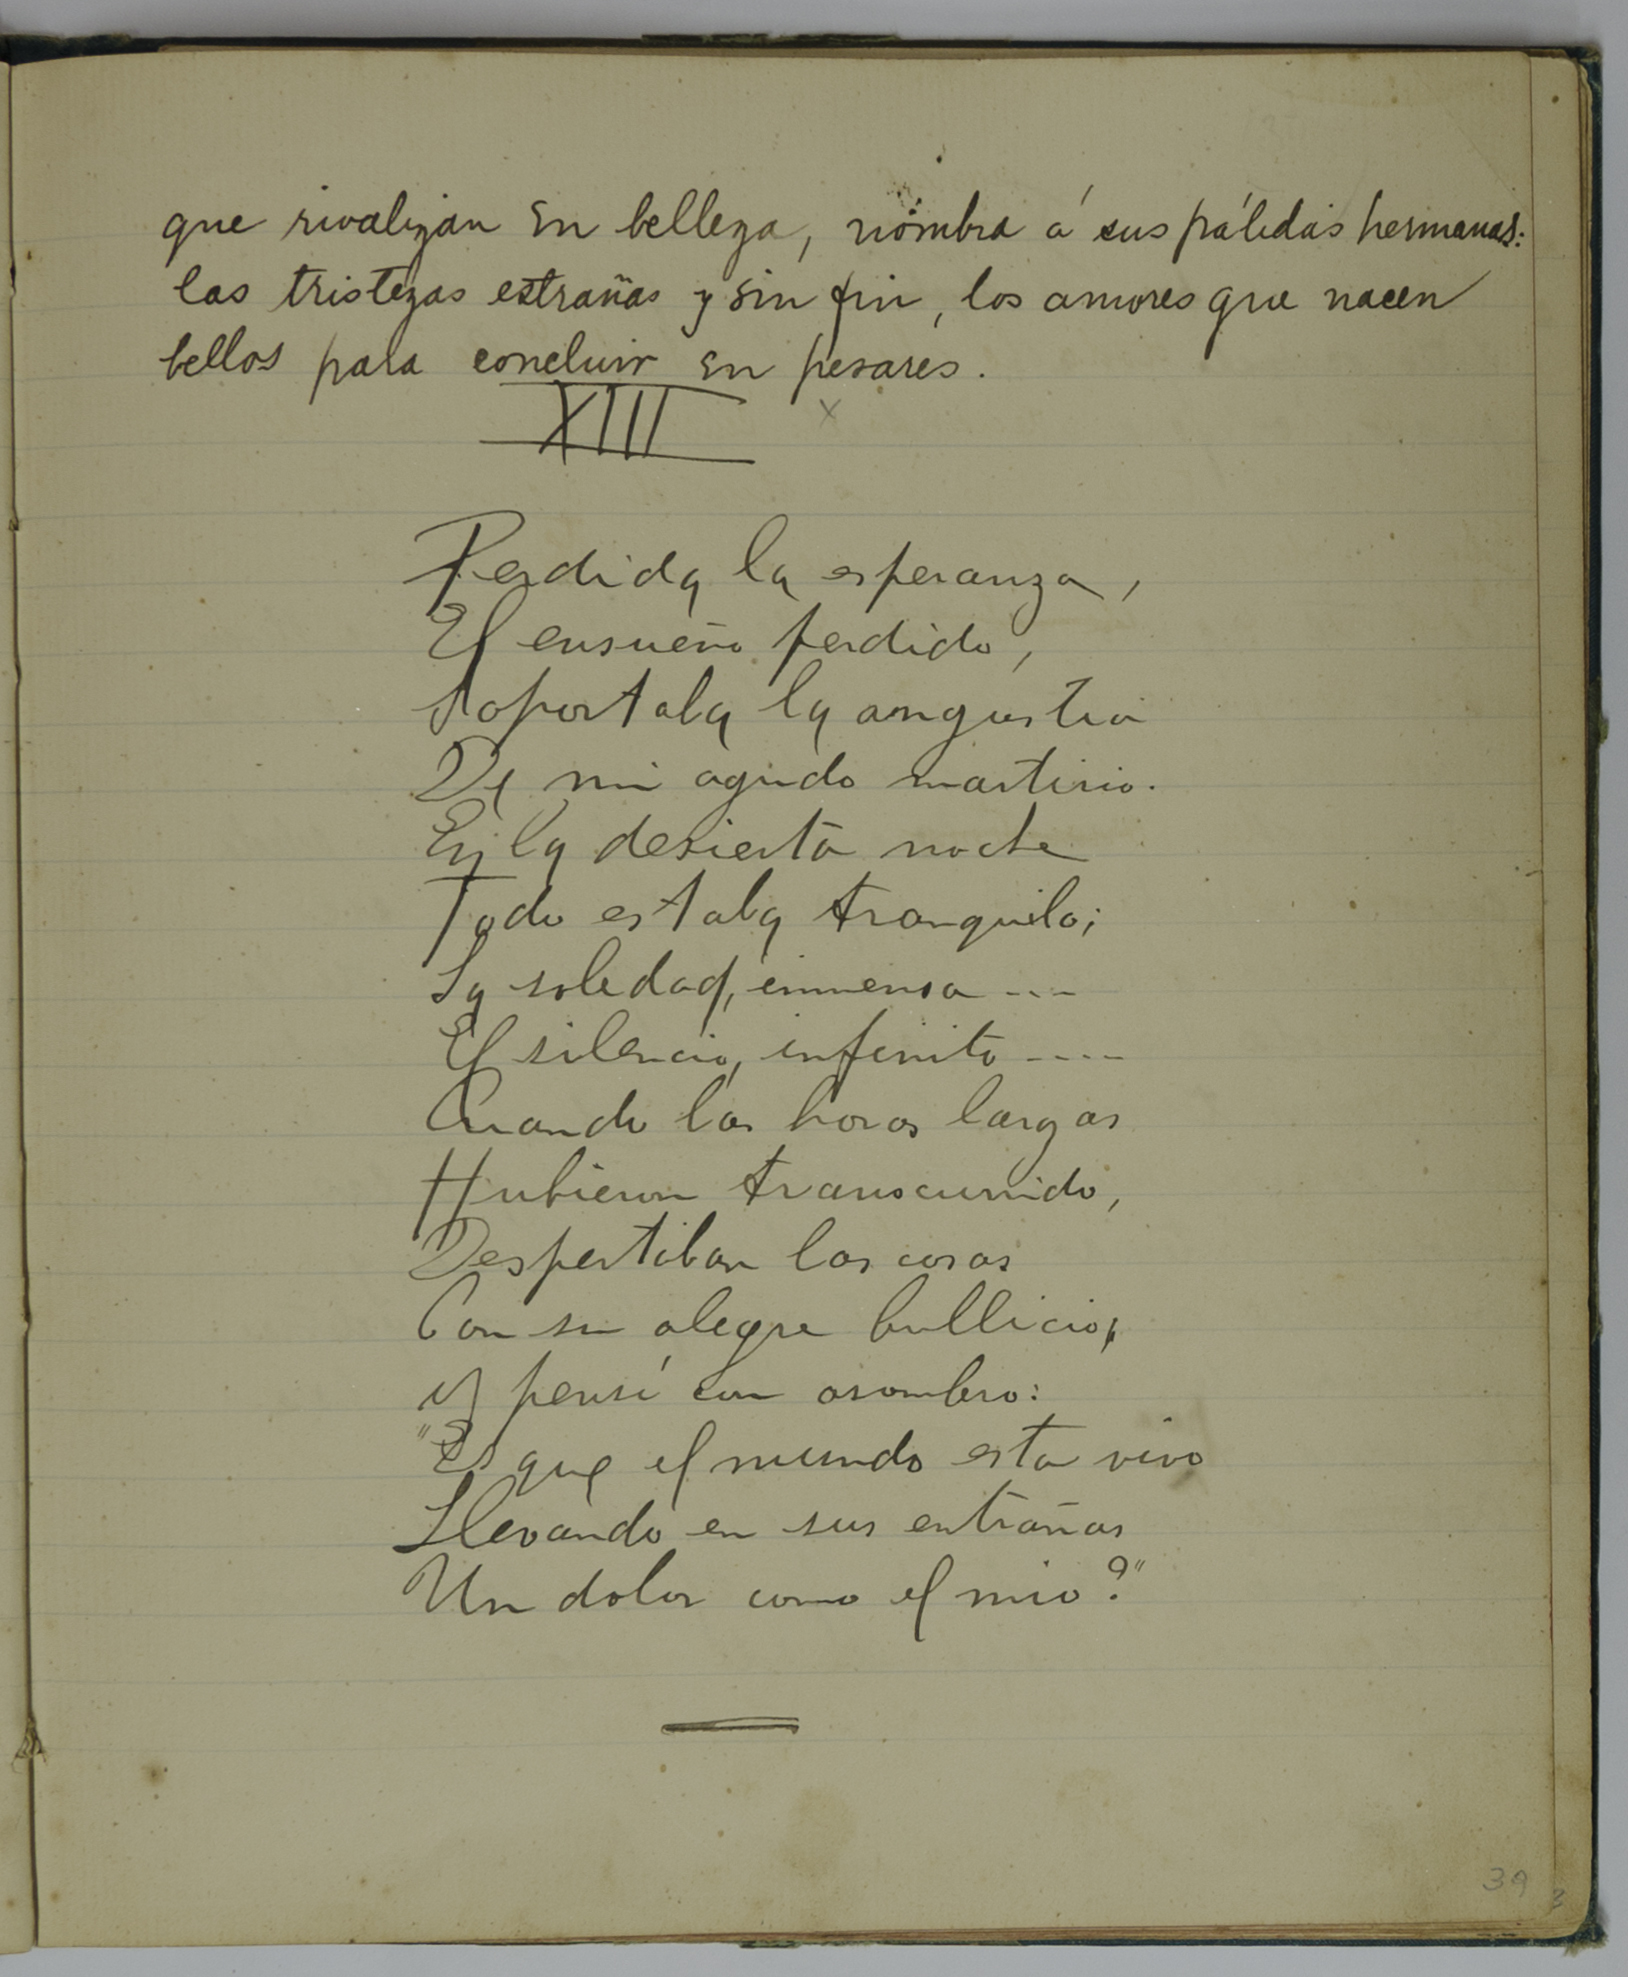 que rivalizan en belleza, nombra á sus pálidas hermanas:
las tristezas estrañas y sin fin, los amores que nacen
bellos para concluir en pesares.
XIII
x
Perdida la esperanza,
El ensueño perdido,
Soportaba la angustia
De mi agudo martirio.
En la desierta noche
Todo estaba tranquilo;
La soledad, inmensa ---
El silencio, infinito ----
Cuando las horas largas
Hubieron transcurrido,
Despertaban las cosas
Con su alegre bullicio,
y pensé con asombro:
"Es que el mundo esta vivo
Llevando en sus entrañas
Un dolor como el mio?"
39
3